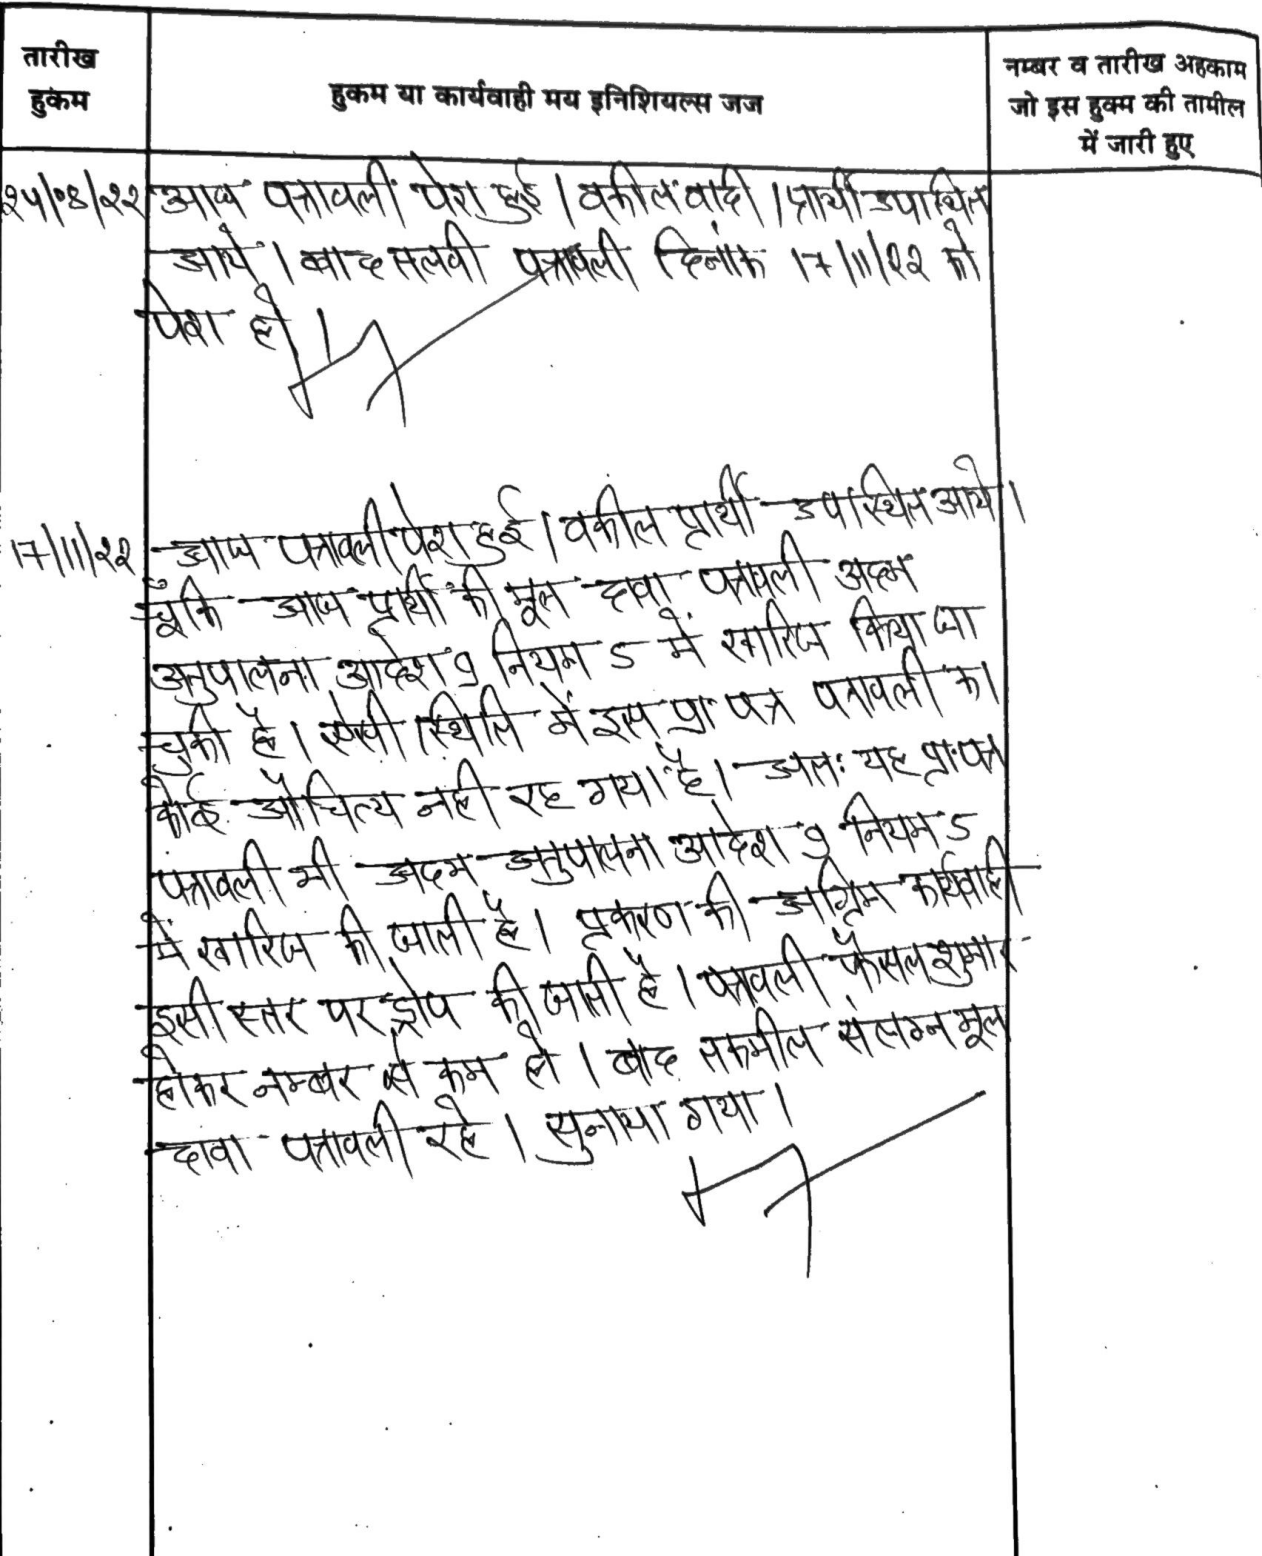 तारीख
हुकम
हुकम या कार्यवाही मय इनिशियल्स जज
नम्बर व तारीख अहकाम
जो इस हुक्म की तामील
में जारी हुए
२५/०४/२२ आज पत्रावली पेश हुई। वकील वादी / प्रार्थी उपस्थित
आये। बाद तलवी पत्रावली दिनांक 17/11/२२ को
पेश हो।
17/11/२२ आज पत्रावली पेश हुई। वकील प्रार्थी उपस्थित आये।
चूँकि आज प्रार्थी की मूल दावा पत्रावली अदम
अनुपालना आदेश 9 नियम 5 में खारिज किया जा
चुकी है। ऐसी स्थिति में इस प्रा. पत्र पत्रावली का
कोई औचित्य नही रह गया है। अतः यह प्रा.पत्र
पत्रावली भी अदम अनुपालना आदेश 9 नियम 5
में खारिज की जाती है। प्रकरण की अग्रिम कार्यवाही
इसी स्तर पर ड्रोप की जाती है। पत्रावली फैसल शुमार
होकर नम्बर से कम हो। बाद तकमील संलग्न मूल
दावा पत्रावली रहे। सुनाया गया।